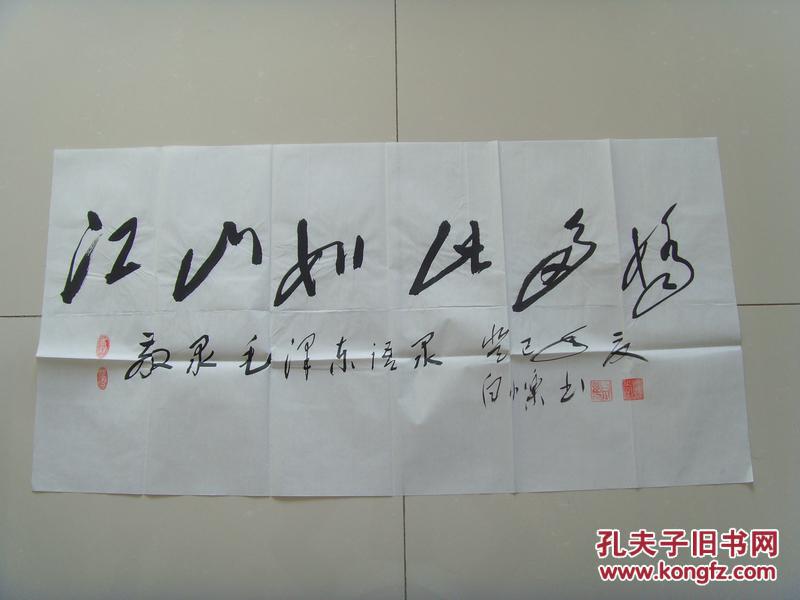 江山如此多娇
敬录毛泽东语录 癸巳年夏
白小乐书
孔夫子旧书网
www.kongfz.com